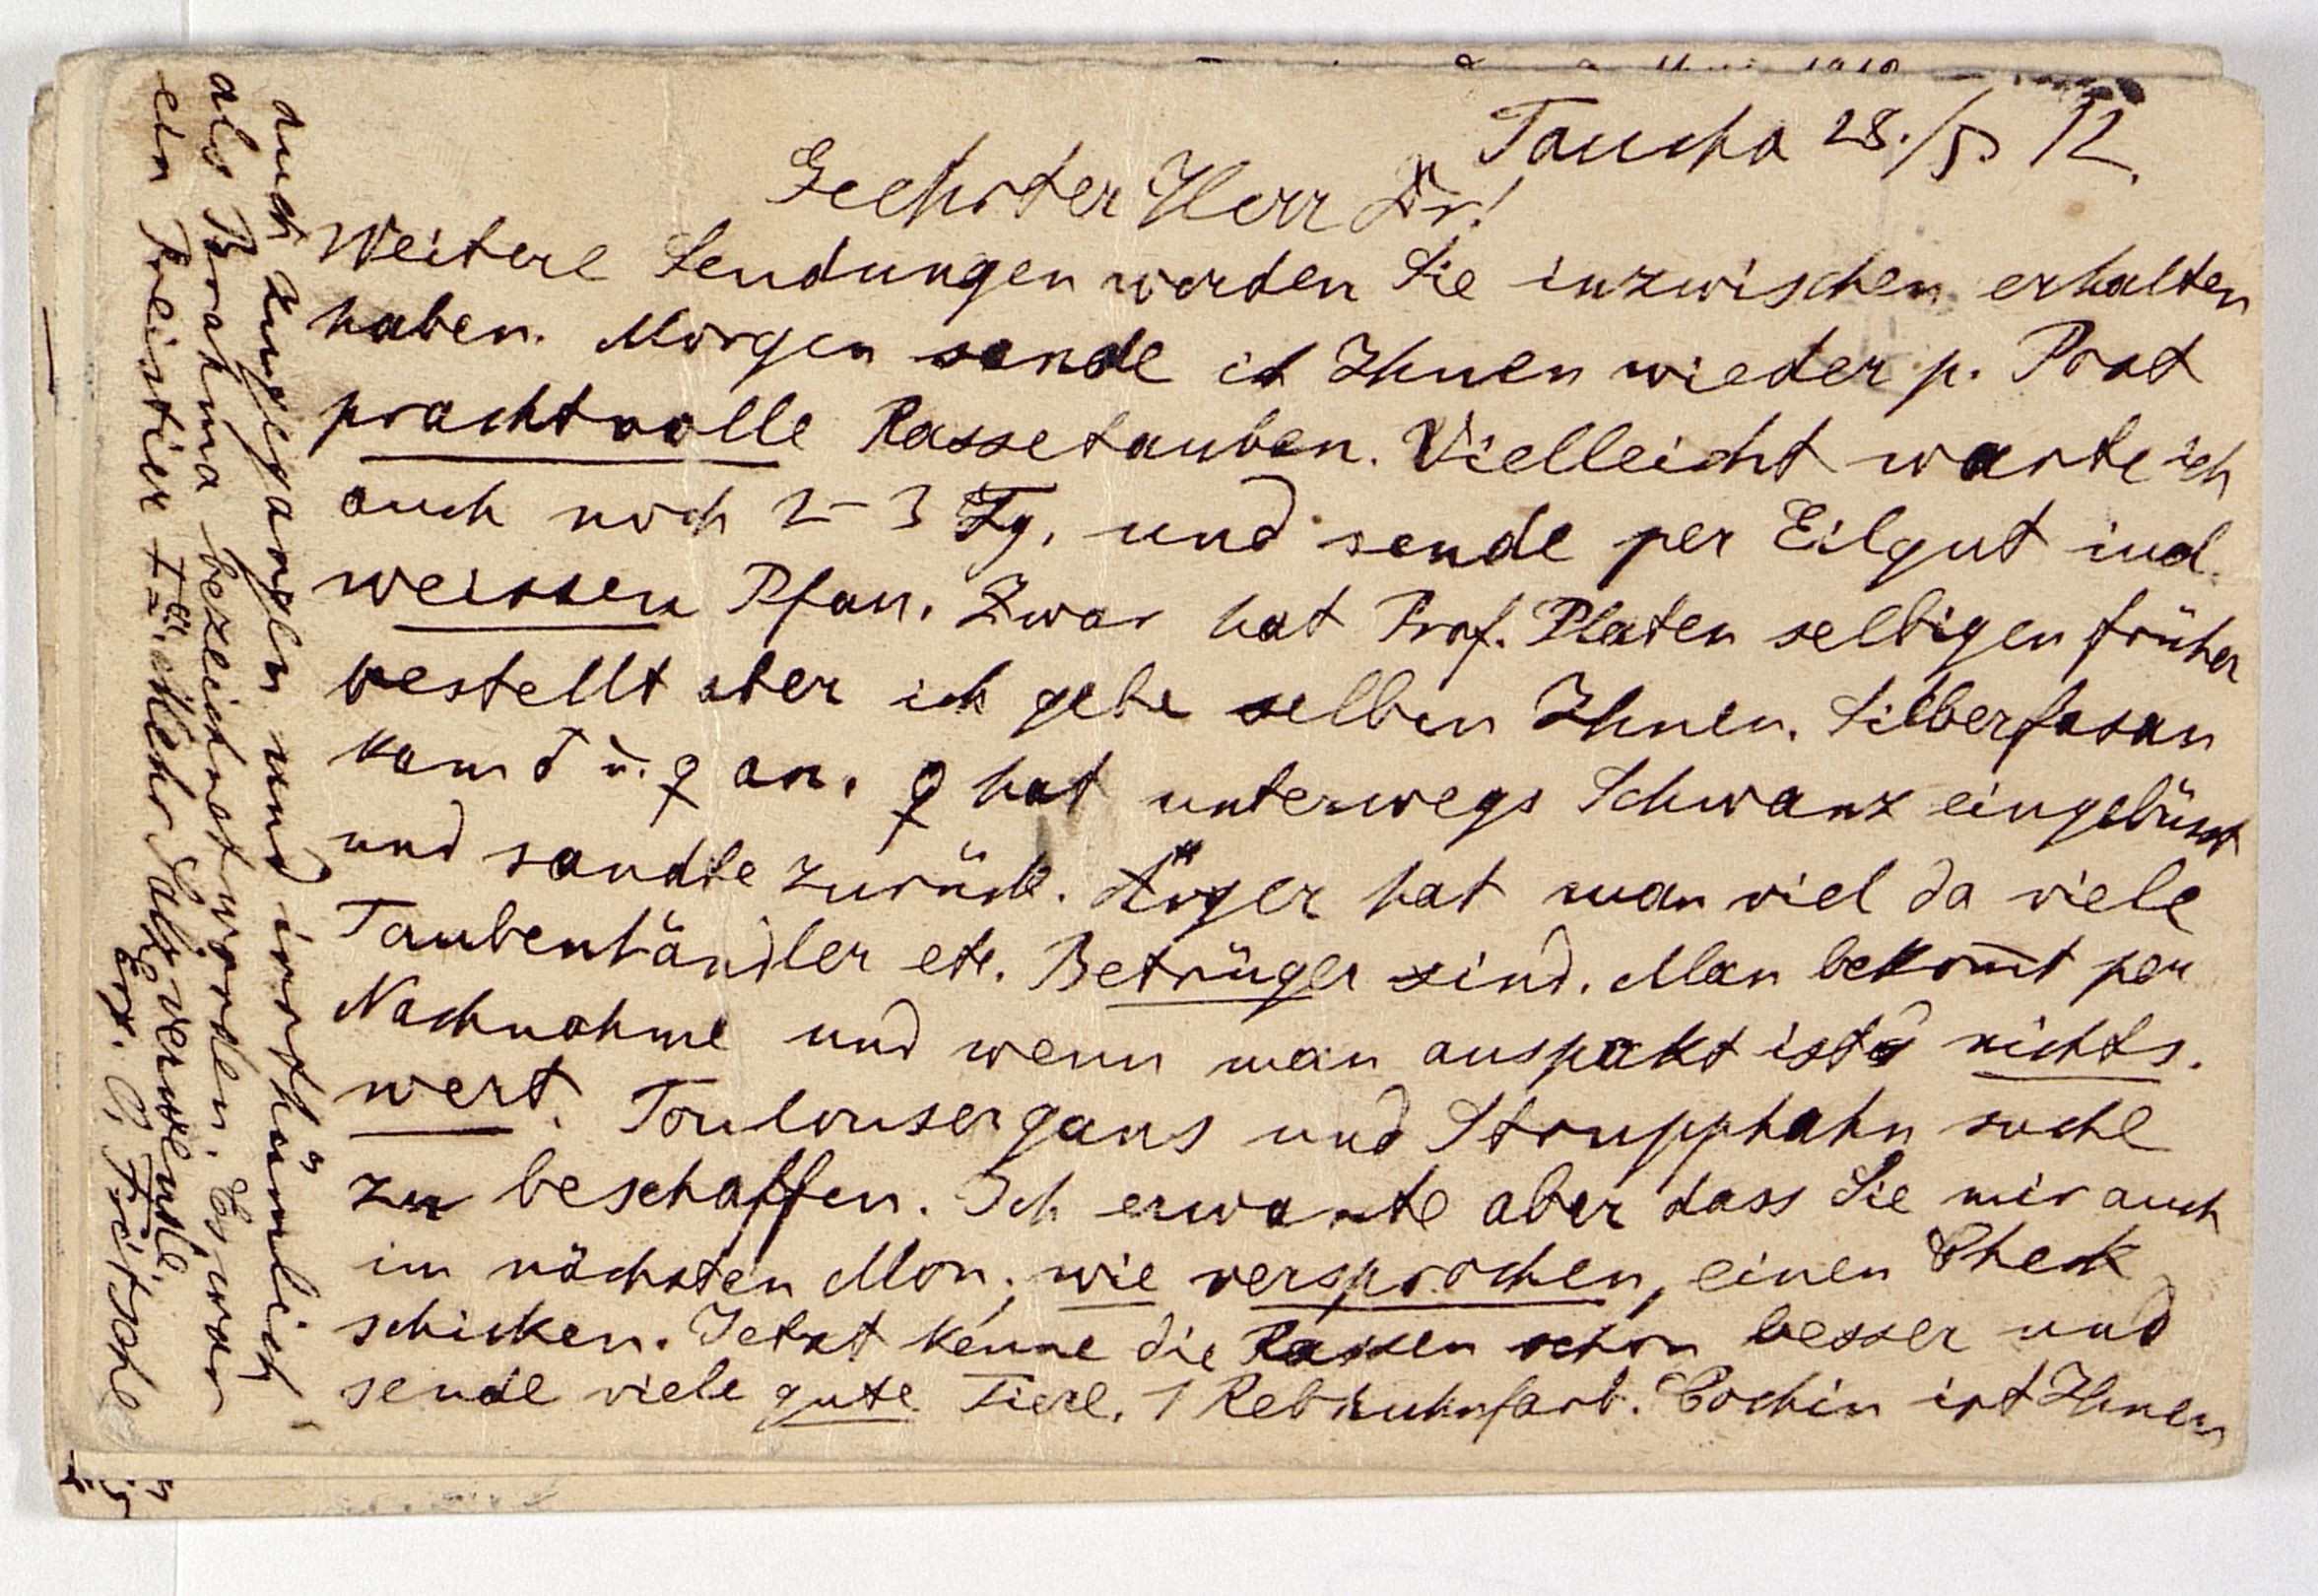 Taucha 28./5. 12.
Geehrter Herr Dr!
Weitere Sendungen werden Sie inzwischen erhalten
haben. Morgen sende ich Ihnen wieder p. Post
prachtvolle Rassetauben. Vielleicht warte ich
auch noch 2-3 Tg. und sende per Eilgut incl.
weissen Pfau. Zwar hat Prof. Platen selbigen früher
bestellt aber ich gebe selben Ihnen. Silberfasan
kam ♂ u. ♀ an. ♀ hat unterwegs Schwanz eingebüsst
und sandte zurück. Ärger hat man viel da viele
Taubenhändler etc. Betrüger sind. Man bekom̅t per
Nachnahme und wenn man auspakt ists nichts.
wert. Toulousergans und Strupphahn suche
zu beschaffen. Ich erwarte aber dass Sie mir auch
im nächsten Mon., wie versprochen, einen Check
schicken. Jetzt kenne die Rassen schon besser und
sende viele gute Tiere. 1 Rebhuhnfarb. Cochin ist Ihnen
auch zugegangen und irrthümlich
als Brahma bezeichnet worden. Es war
ein Preistier I
verwende.
Erg. C. Fritsche